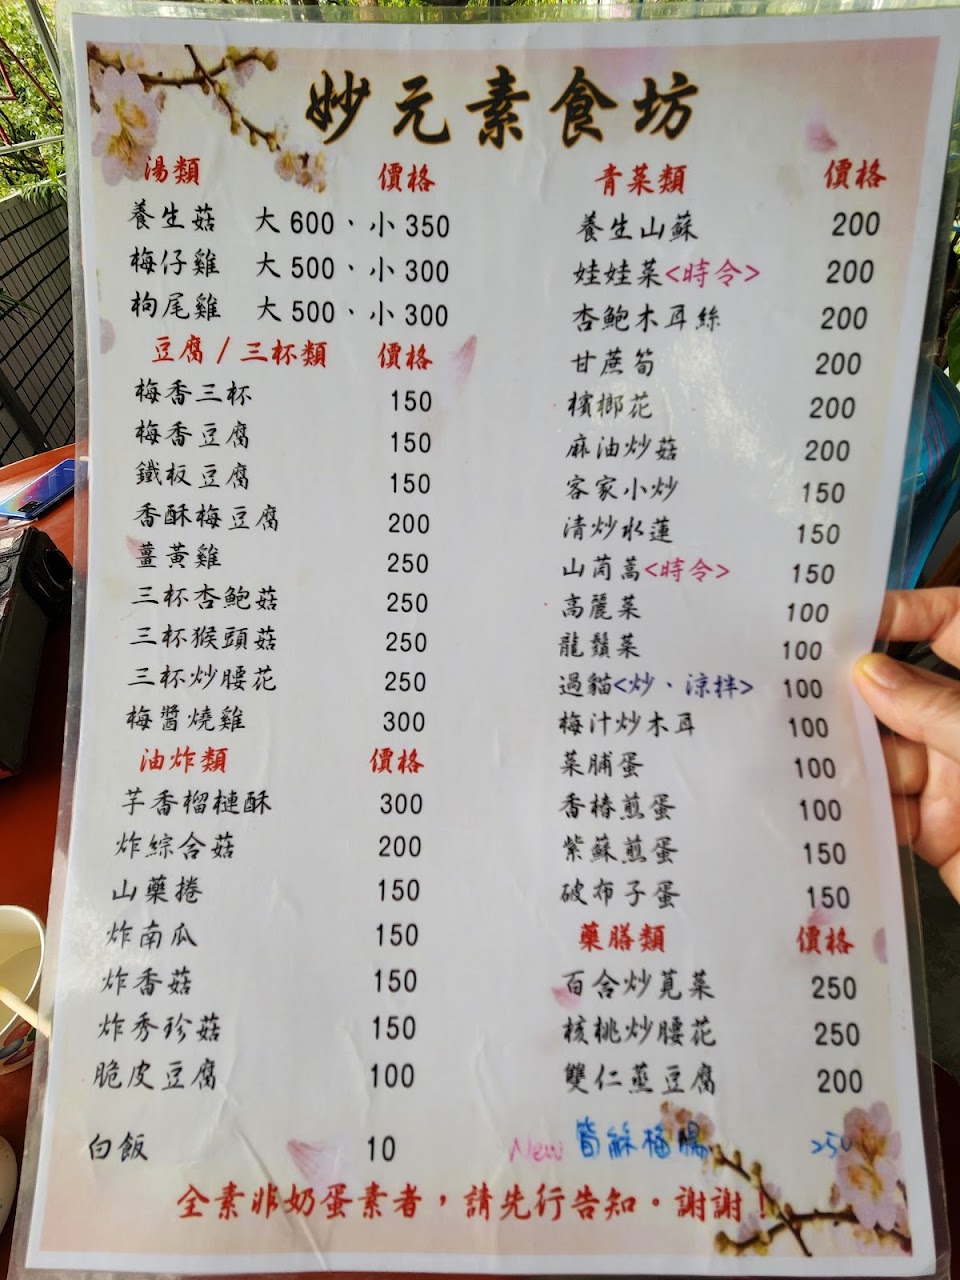 妙元素食坊
湯類 價格
養生菇 大 600、小 350
梅仔雞 大 500、小 300
枸尾雞 大 500、小 300
豆腐 / 三杯類 價格
梅香三杯 150
梅香豆腐 150
鐵板豆腐 150
香酥梅豆腐 200
薑黃雞 250
三杯杏鮑菇 250
三杯猴頭菇 250
三杯炒腰花 250
梅醬燒雞 300
油炸類 價格
芋香榴槤酥 300
炸綜合菇 200
山藥捲 150
炸南瓜 150
炸香菇 150
炸秀珍菇 150
脆皮豆腐 100
白飯 10
青菜類 價格
養生山蘇 200
娃娃菜<時令> 200
杏鮑木耳絲 200
甘蔗筍 200
檳榔花 200
麻油炒菇 200
客家小炒 150
清炒水蓮 150
山茼蒿<時令> 150
高麗菜 100
龍鬚菜 100
過貓<炒、涼拌> 100
梅汁炒木耳 100
菜脯蛋 100
香椿煎蛋 100
紫蘇煎蛋 150
破布子蛋 150
藥膳類 價格
百合炒莧菜 250
核桃炒腰花 250
雙仁蒸豆腐 200
New 250
全素非奶蛋素者，請先行告知。謝謝！